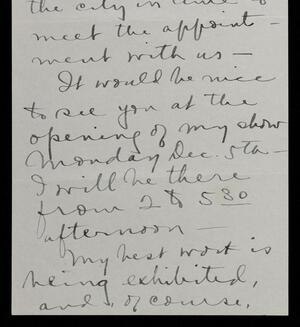 the city in time to
meet the appoint-
ment with us —
It would be nice
to see you at the
opening of my show
Monday Dec. 5th —
I will be there
from 2 to 5 30
afternoon —
My best work is
being exhibited,
and, of course,